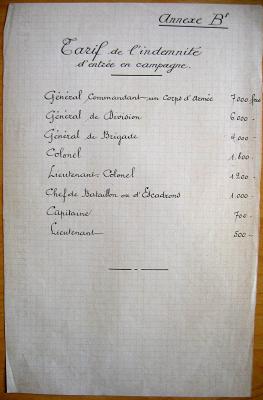 Annexe Bʳ
Tarif de l'indemnité
d'entrée en campagne.
Général Commandant un Corps d'Armée 7.000 frs
Général de Division 6.000 -
Général de Brigade 4.000 -
Colonel 1.800 -
Lieutenant-Colonel 1.200 -
Chef de Bataillon ou d'Escadrons 1.000 -
Capitaine 700 -
Lieutenant 500 -